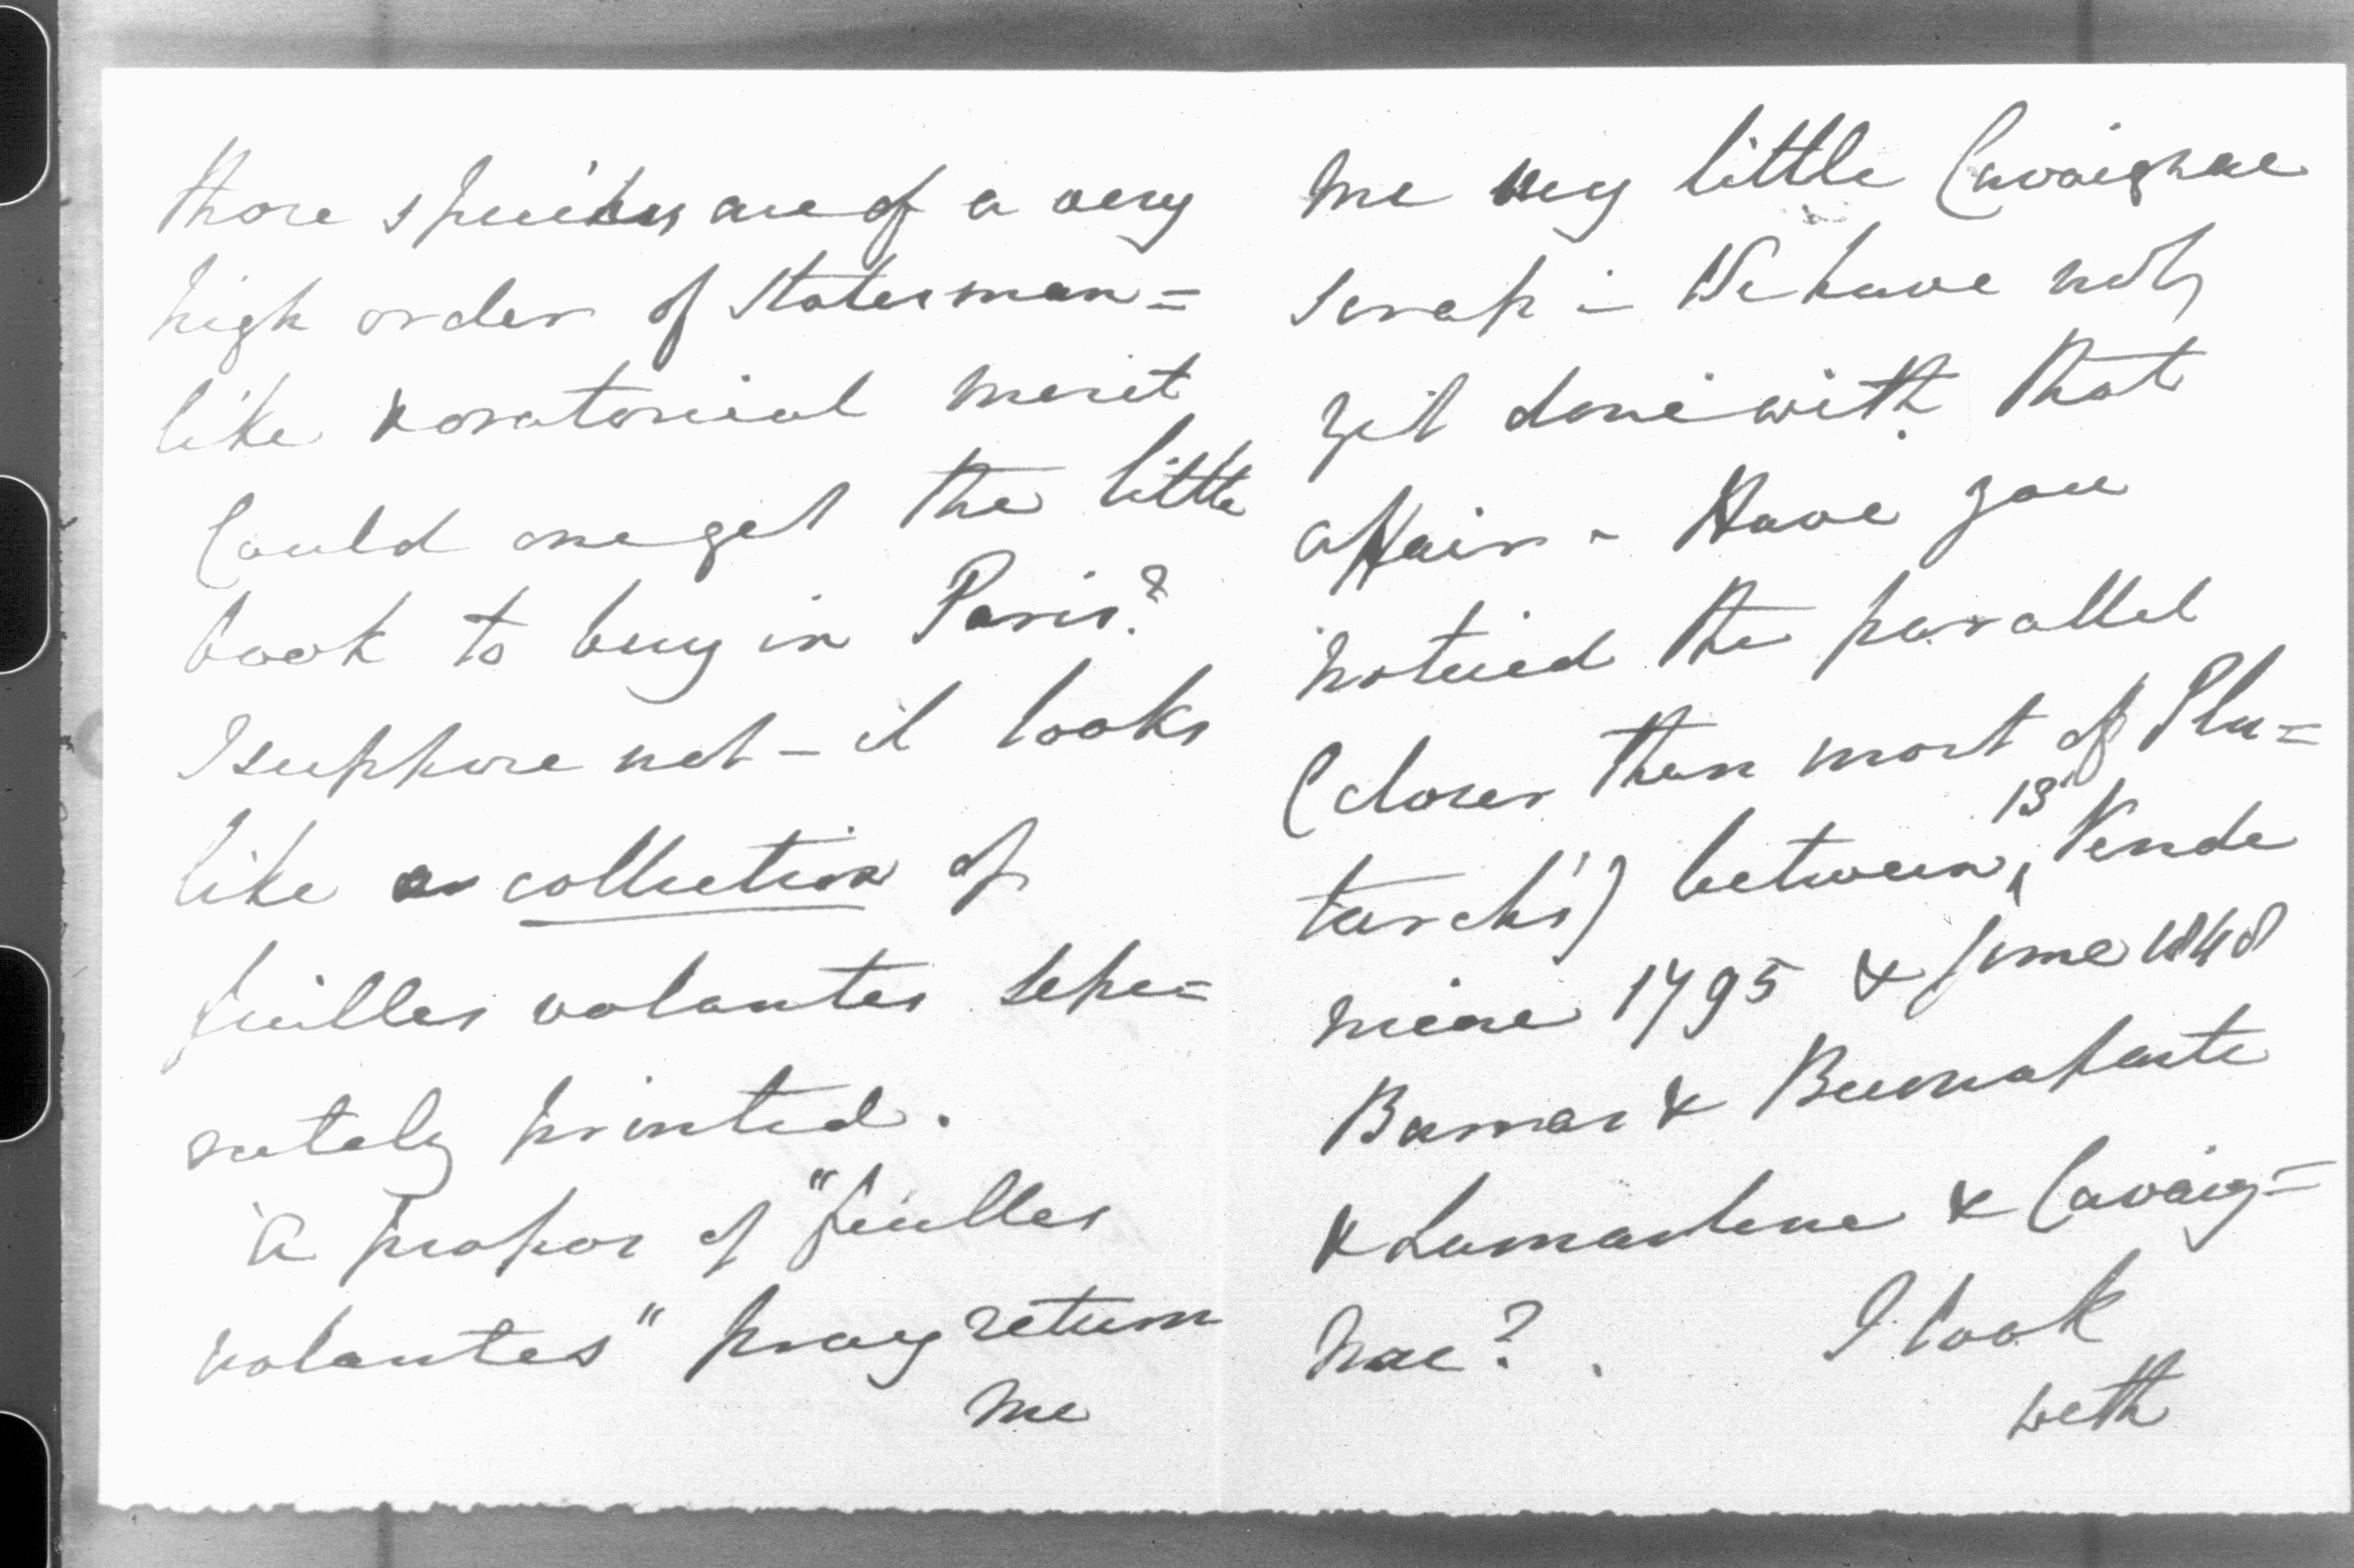 those speeches are of a very
high order of statesman=
like & oratorical merit
Could one get the little
book to buy in Paris?
I suppose not – it looks
like a collection of
feuilles volantes sepa=
rately printed.
à propos of "feuilles
volantes" pray return
me
me my little Cavaignac
scrap – We have not
yet done with that
affair – Have you
noticed the parallel
(closer than most of Plu=
tarch's) between 13 Vende
miaire 1795 & June 1848
Barras & Buonaparte
& Lamartine & Cavaig=
nac? I look
with